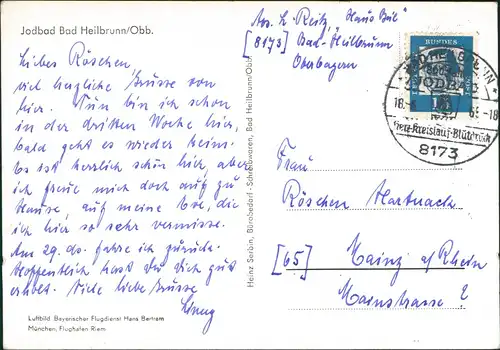 Jodbad Bad Heilbrunn/Obb.
Liebes Röschen,
viel herzliche Grüsse von
hier. Nun bin ich schon
in der dritten Woche hier,
bald geht es wieder heim.
Es ist herrlich schön hier, aber
ich freue mich doch auf zu
Hause, auf meine die
ich hier so sehr vermisse.
Am 29. ds. fahre ich zurück.
Hoffentlich hast du dich gut
erholt. Viele liebe Grüsse
Luftbild Bayerischer Flugdienst Hans Bertram
München, Flughafen Riem
Heinz Serbin, Bürobedarf - Schreibwaren, Bad Heilbrunn/Obb.
Abs. L. Reitz, Haus
[8173] Bad-Heilbrunn
Oberbayern
BUNDES
18.
63-18
Herz-Kreislauf-Blutdruck
8173
Frau
Röschen Hartnack
[65] Mainz a/Rhein
Mainstrasse 2